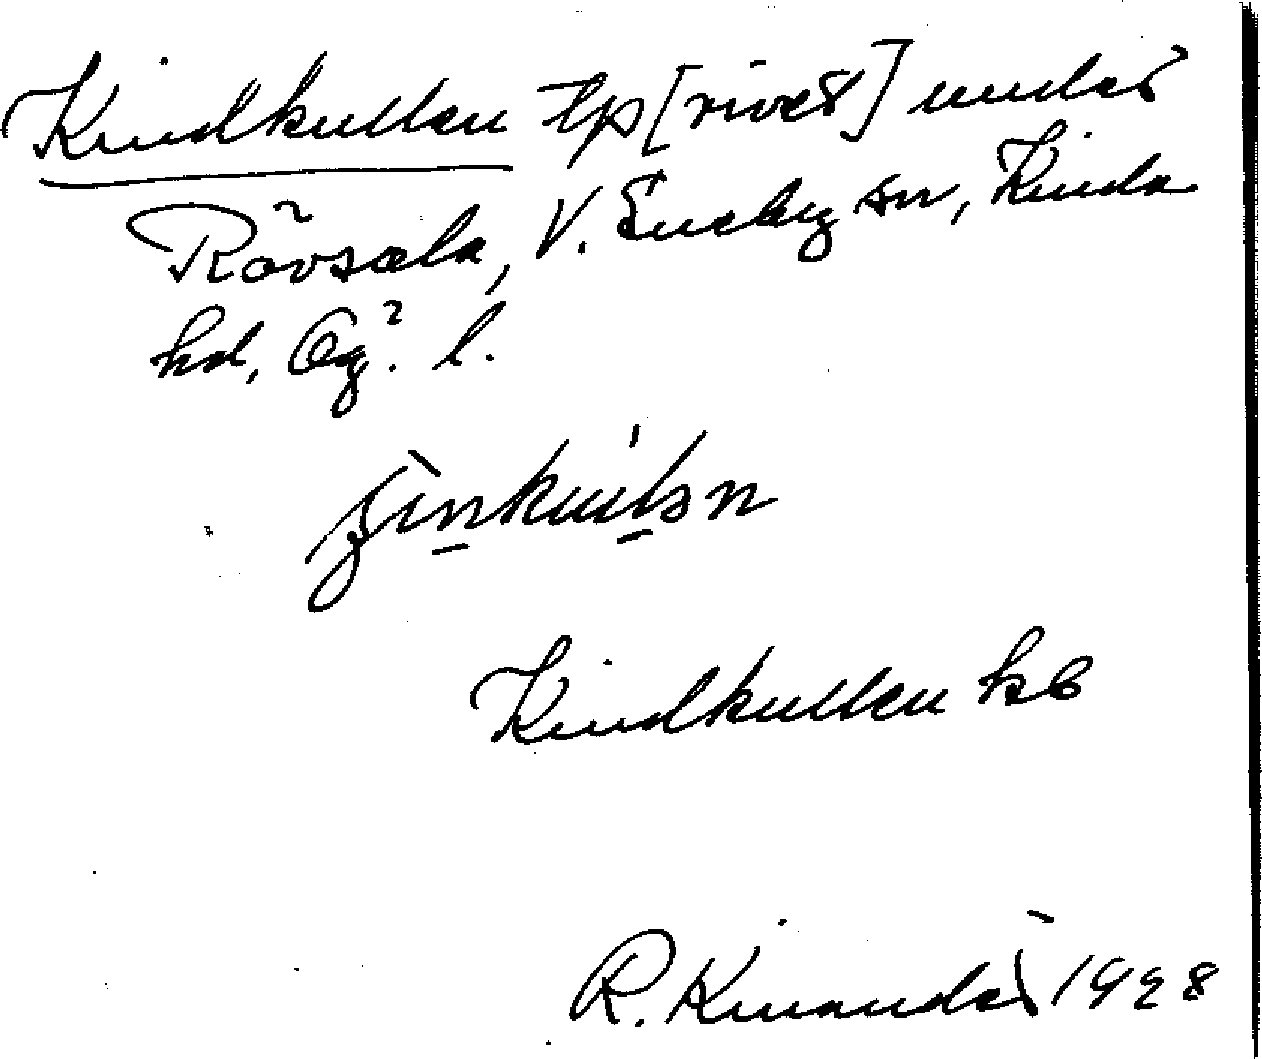 Kindkullen tp [rivet] under
Rövsala, V. Eneby sn, Kinda
hd, Ög. l.
Kindkullen kb
R. Kinander 1928